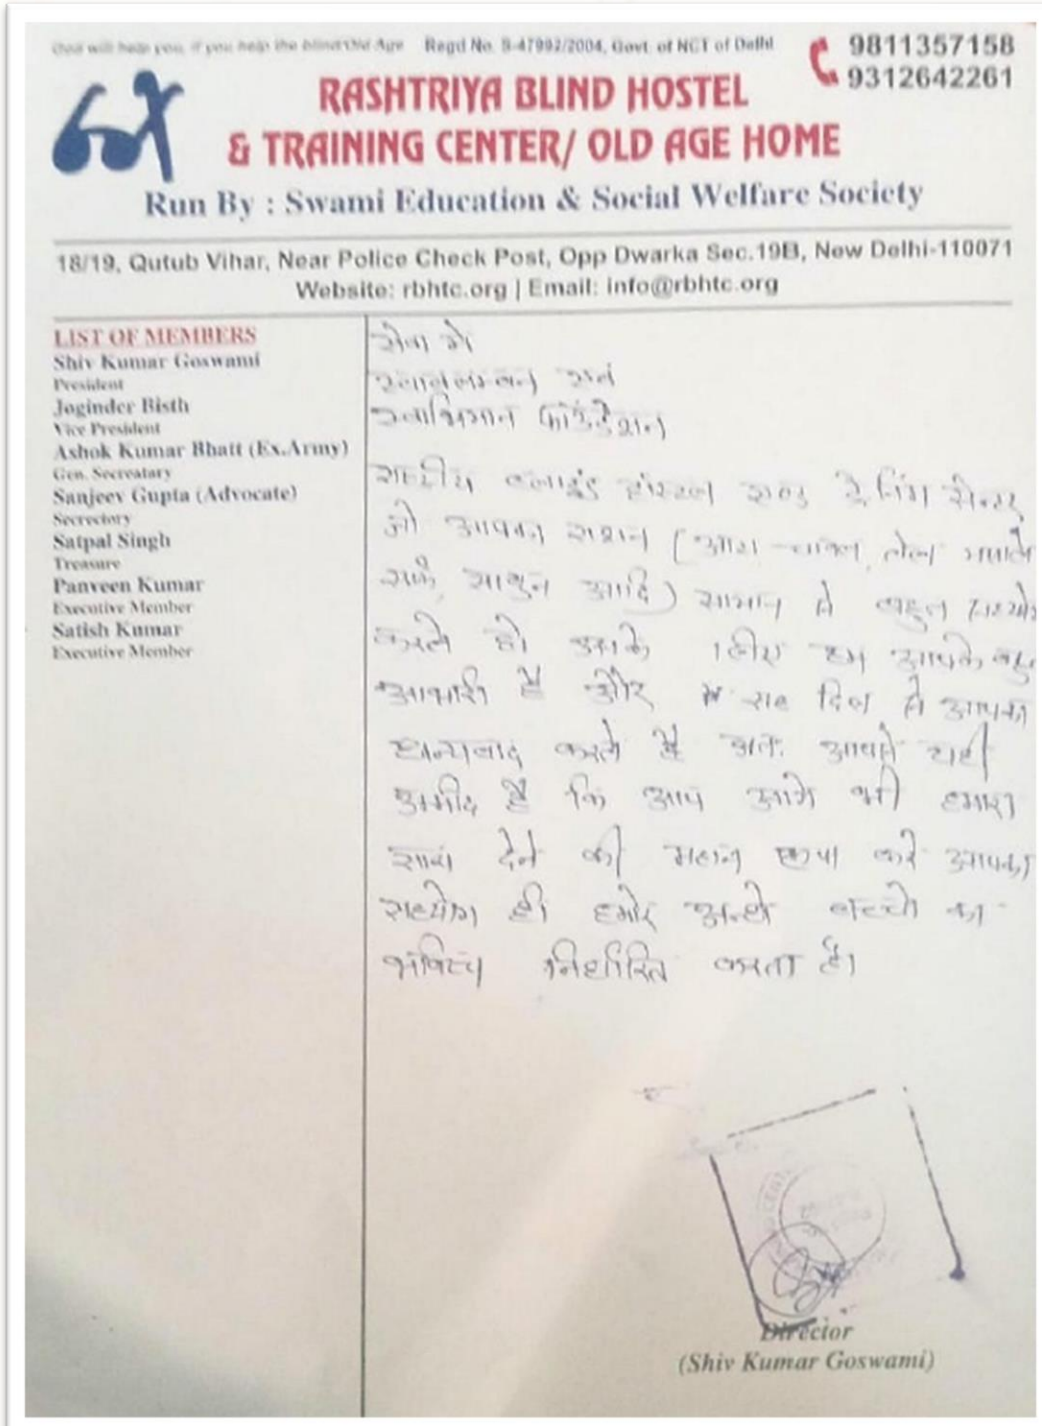 God will help you, if you help the blind/Old Age Regd No. S-47992/2004, Govt. of NCT of Delhi
9811357158
9312642261
RASHTRIYA BLIND HOSTEL
& TRAINING CENTER/ OLD AGE HOME
Run By : Swami Education & Social Welfare Society
18/19, Qutub Vihar, Near Police Check Post, Opp Dwarka Sec.19B, New Delhi-110071
Website: rbhtc.org | Email: info@rbhtc.org
LIST OF MEMBERS
Shiv Kumar Goswami
President
Joginder Bisth
Vice President
Ashok Kumar Bhatt (Ex.Army)
Gen. Secreatary
Sanjeev Gupta (Advocate)
Secrectory
Satpal Singh
Treasure
Panveen Kumar
Executive Member
Satish Kumar
Executive Member
सेवा मे
स्वावलम्बन एवं
स्वाभिमान फाउंडेशन
राष्ट्रीय ब्लाइंड हॉस्टल एण्ड ट्रेनिंग सेन्टर
जो आपका राशन (आटा चावल, तेल मसाले
सर्फ, साबुन आदि) सामान से बहुत
करते हो उसके लिए हम आपके
आभारी हैं और दिल से आपका
धन्यवाद करते हैं अतः आपसे यही
उम्मीद है कि आप आगे भी हमारा
साथ देने की महान कृपा करे आपका
सहयोग ही हमारे अन्धे बच्चो का
भविष्य निर्धारित करता है।
Director
(Shiv Kumar Goswami)